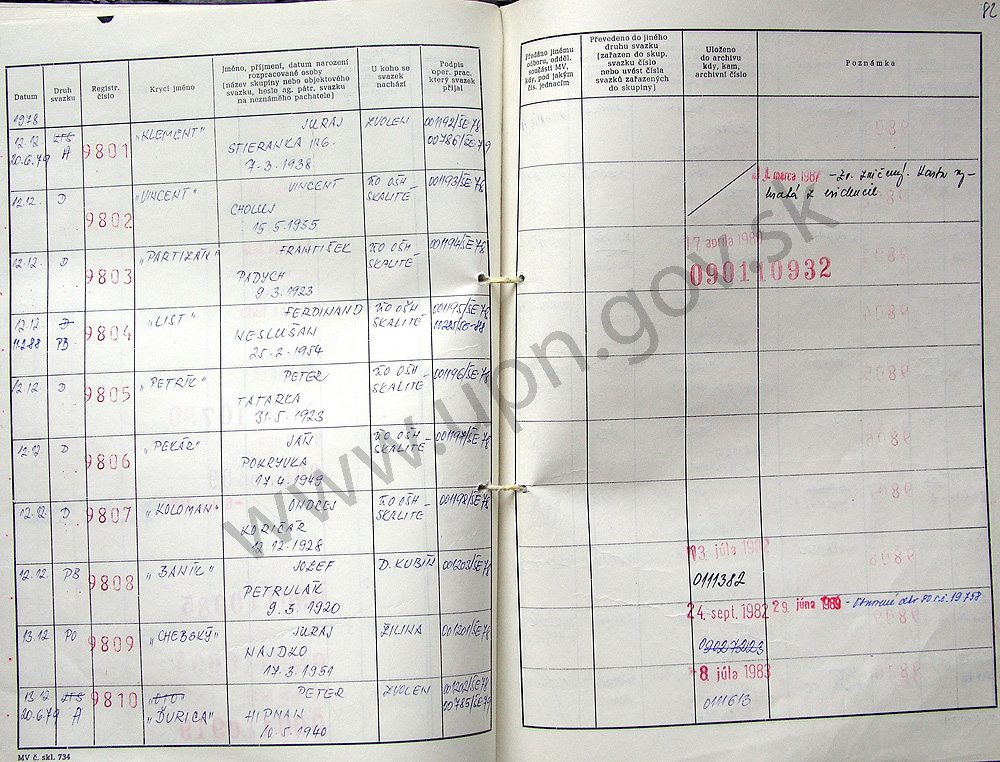 82
Datum
Druh svazku
Registr. číslo
Krycí jméno
Jméno, příjmení, datum narození rozpracované osoby (název skupiny nebo objektového svazku, heslo ag. pátr. svazku na neznámého pachatele)
U koho se svazek nachází
Podpis oper. prac. který svazek přijal
Předáno jinému odboru, odděl. součásti MV, kdy, pod jakým čís. jednacím
Převedeno do jiného druhu svazku (zařazen do skup. svazku číslo nebo uvést čísla svazků zařazených do skupiny)
Uloženo do archivu kdy, kam, archivní číslo
Poznámka
1978
12.12 9801 „KLEMENT" JURAJ ZVOLEN 001192/ŠE 78
20.6.79 A STIERANKA ING. 00786/ŠE-79
7-3-1938
12.12. D 9802 „VINCENT" VINCENT ŽO OŠH SKALITÉ 001193/ŠE 78
CHOLUJ
15.5.1955
12.12. D 9803 „PARTIZÁN" FRANTIŠEK ŽO OŠH SKALITÉ 001194/ŠE 78
PADYCH
9.3.1923
17. apríla 198
090110932
12.12. D 9804 „LIST" FERDINAND ŽO OŠH SKALITÉ 001195/ŠE 78
PB NESLUŠAN
25-2-1954
12.12 D 9805 „PETRÍK" PETER ŽO OŠH SKALITÉ 001196/ŠE 78
TATARKA
31.5.1923
12.12 D 9806 „PEKÁR" JÁN ŽO OŠH SKALITÉ 001197/ŠE 78
POKRYVKA
17.4.1949
12.12. D 9807 „KOLOMAN" ONDREJ ŽO OŠH SKALITÉ 001198/ŠE 78
KORIČÁR
12.12-1928
12.12. PB 9808 „BANÍK" JOZEF D. KUBÍN 001203/ŠE 78
PETRULÁK
9.3.1920
13. júla 1982
0111382
13.12 PO 9809 „CHEBSKÝ" JURAJ ŽILINA 001201/ŠE 78
HAJDKO
17.3.1951
24. sept. 1982 29. júna 1989
13.12 9810 PETER ZVOLEN 001202/ŠE 78
20.6.79 A „ĎURICA" HIPMAN 00785/ŠE 79
10.5.1940
8. júla 1983
0111613
MV č. skl. 734
www.upn.gov.sk